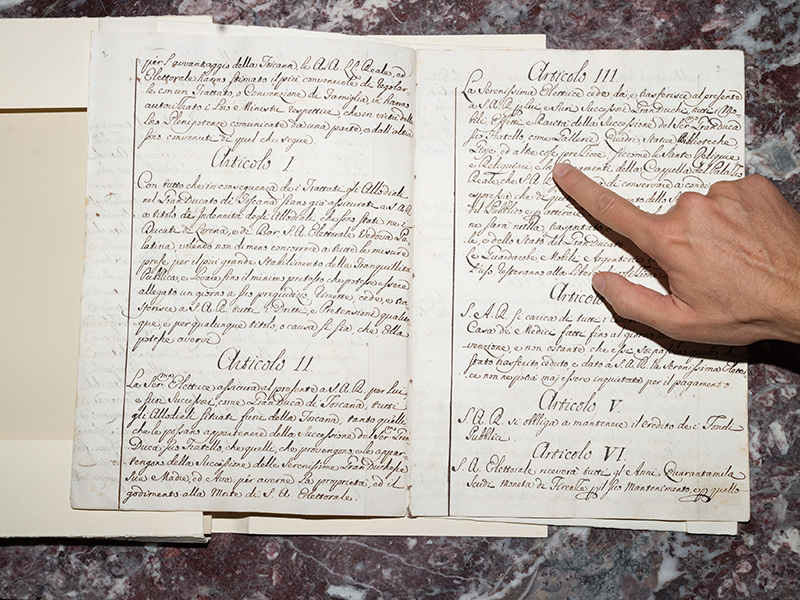 per l'avvantaggio della Toscana le A.A. L.L. Reale, ed
Elettorale hanno stimato il più convenevole di regolar-
le con un Trattato, o Convenzione di Famiglia, ed hanno
autorizzato i Loro Ministri rispettivi che in virtù delle
Loro Plenipotenze comunicate da una parte e dall'altra
sono convenute di quel che segue.
Articolo I
Con tutto che in conseguenza de i Trattati gli Allodiali
nel GranDucato di Toscana siano già assicurati a S.A.R.
a titolo de Indennità degli Allodiali che sono stati ne i
Ducati de Lorena, e di Bar S.A. Elettorale Vedova Pa-
latina, volendo non di meno concorrere a tutte le misure
prese per il più grande Stabilimento della Tranquillità
Pubblica, e levare fino il minimo pretesto, che potesse essere
allegato un giorno a suo pregiudizio, rimette, cede, e tra-
sferisce a S.A.R. tutti i Dritti, e Pretensioni qualun-
que, e per qualunque titolo, o causa si sia che Ella
potesse avervi
Articolo II
La Ser.ma Elettrice assicura al presente a S.A.R. per Lui
e suoi Successori come GranDuca di Toscana, tutti
gli Allodiali situati fuori della Toscana, tanto quelli,
che le possano appartenere della Successione del Ser.mo Gran
Duca suo Fratello, che quelli, che provengono, o le appar-
tengono della Successione delle Serenissime GranDuchesse
Sue Madre, ed Ava, per averne la proprietà, ed il
godimento alla Morte di S.A. Elettorale.
3
Articolo III
La Serenissima Elettrice cede, dà, e trasferisce al presente
a S.A.R. per Lui, e suoi Successori GranDuchi tutti i Mo-
bili, Effetti, e Rarità della Successione del Ser.mo GranDuca
suo Fratello, come Gallerie, Quadri, Statue, Biblioteche,
Gioie, ed altre cose preziose, siccome le Sante Reliquie
e Reliquiari, e loro Ornamenti della Cappella del Palazzo
Reale, che S.A.R. di conservare a condi-
espressa che di quello
del Pubblico e per attirare
ne sarà nulla trasportato
le, e dello Stato del GranDucato
le Guardarobe e Mobili, e Argenterie
resteranno alla Libera
Articolo
S.A.R. si carica di tutti i
Casa de Medici fatti fino al giorno
venzione, e non ostante che essi
stato trasferito ceduto, e dato a S.A.R. la Serenissima Elettri-
ce non ne potrà mai essere inquietata per il pagamento
Articolo V.
S.A.R. si obbliga a mantenere il Credito de i Fondi
Pubblici
Articolo VI.
S.A. Elettorale riceverà tutti gl'Anni Quarantamila
Scudi moneta di Firenze p il suo Mantenimento, e p quello